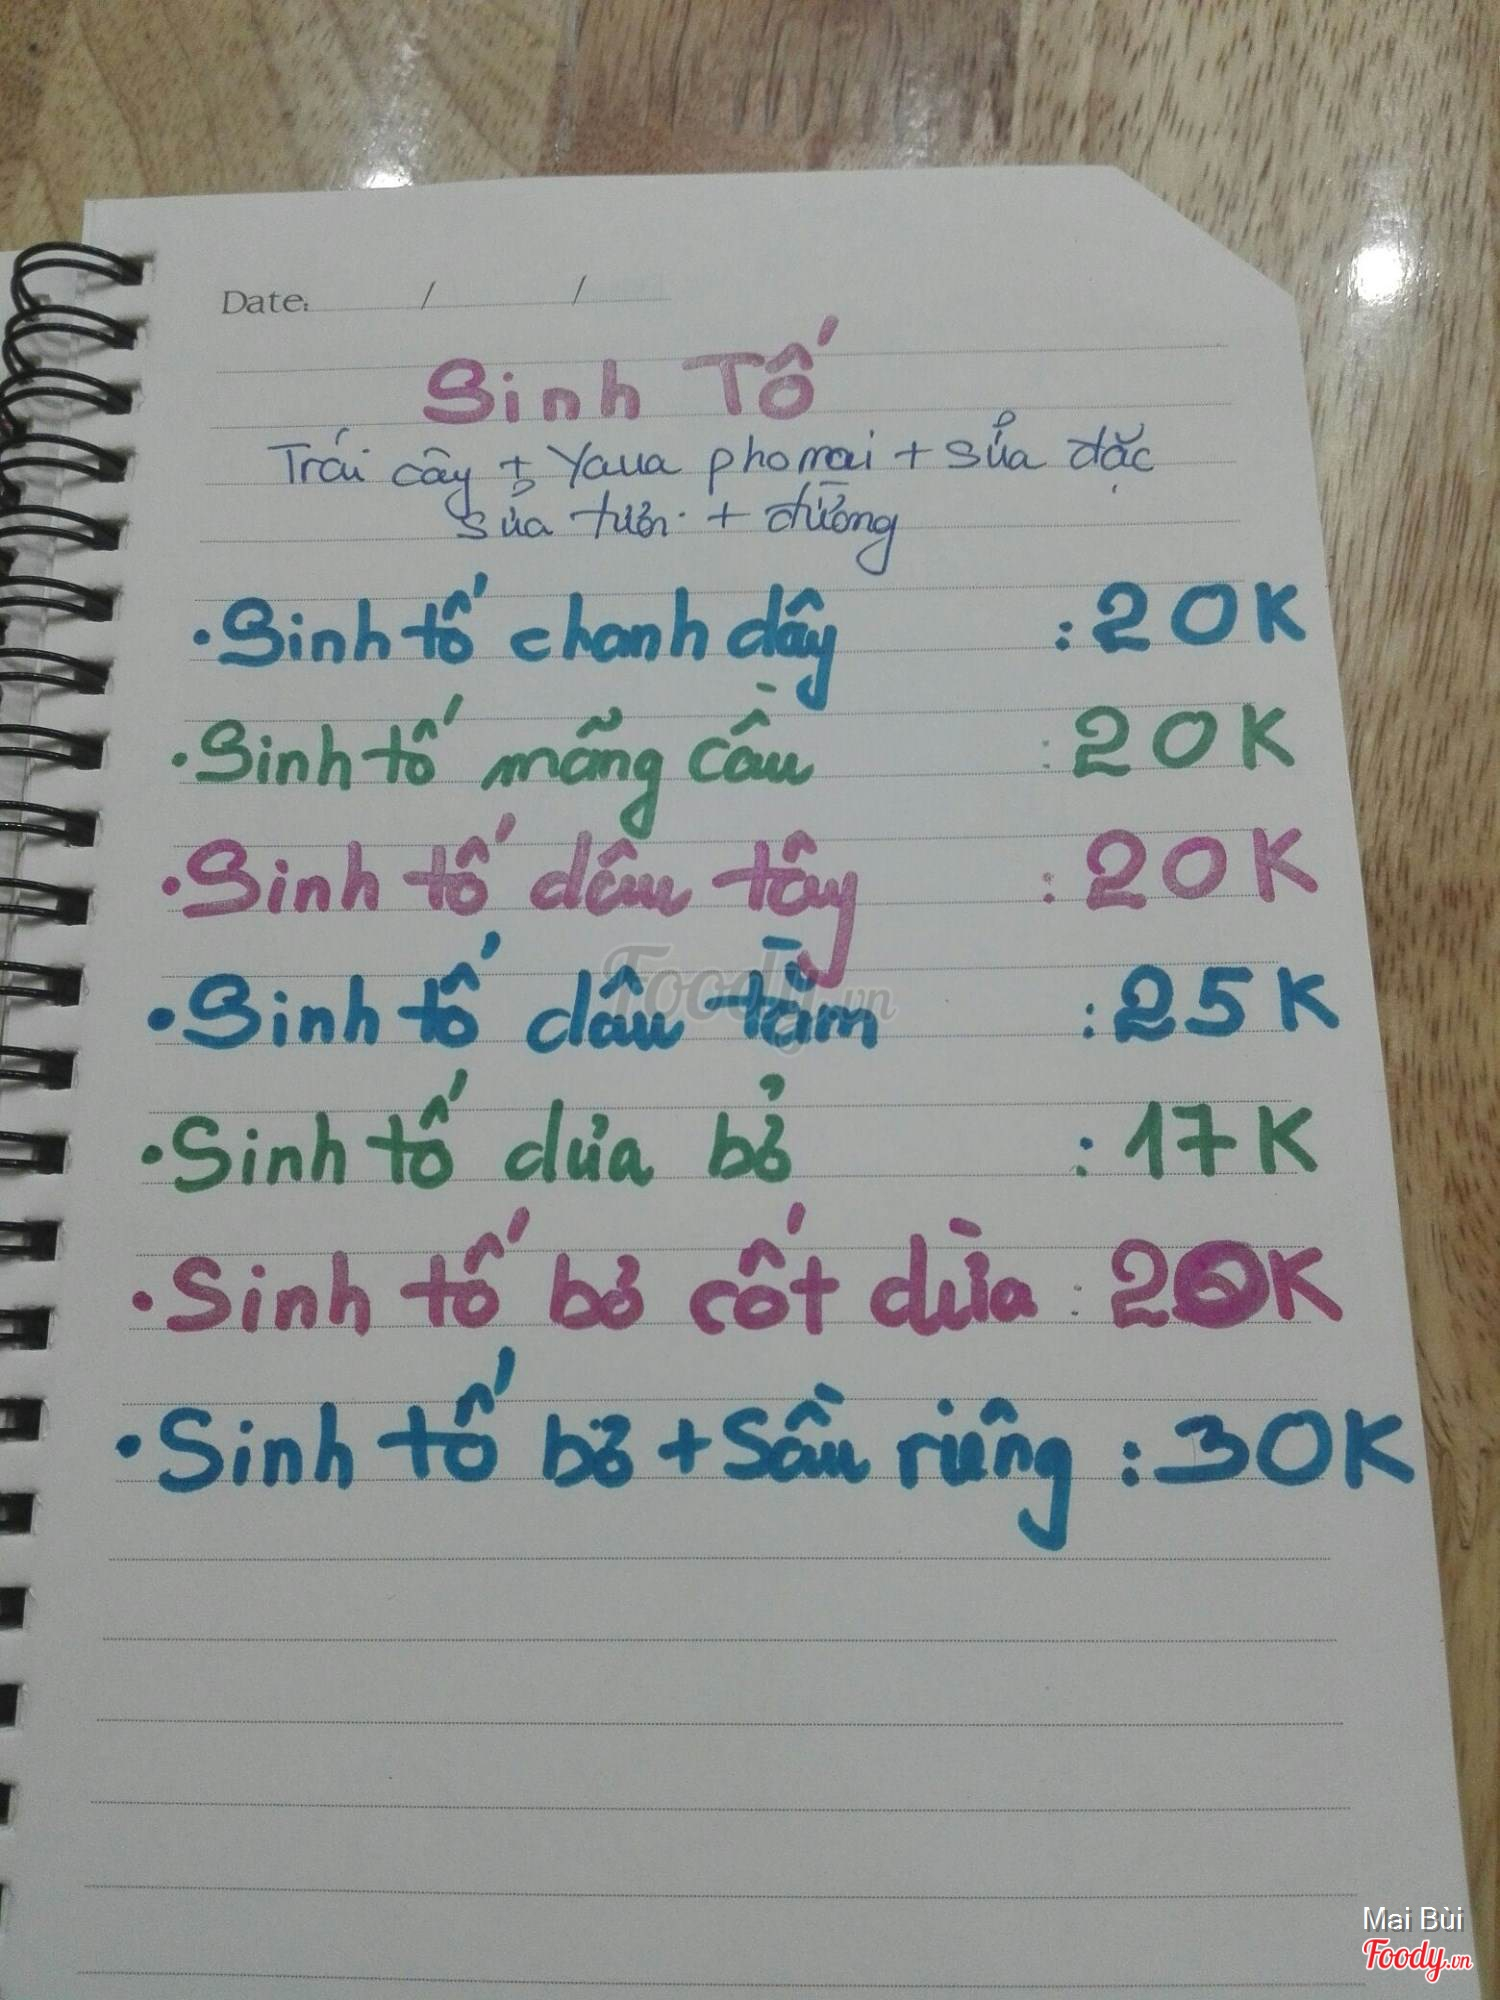 Date: / /
Sinh Tố
Trái cây + Yaua phomai + sửa đặc
sửa tươi + đường
• Sinh tố chanh dây : 20K
• Sinh tố mãng cầu : 20K
• Sinh tố dâu tây : 20K
• Sinh tố dâu tằm : 25K
• Sinh tố dưa bở : 17K
• Sinh tố bơ cốt dừa : 20K
• Sinh tố bơ + Sầu riêng : 30K
Foody.vn
Mai Bùi
Foody.vn